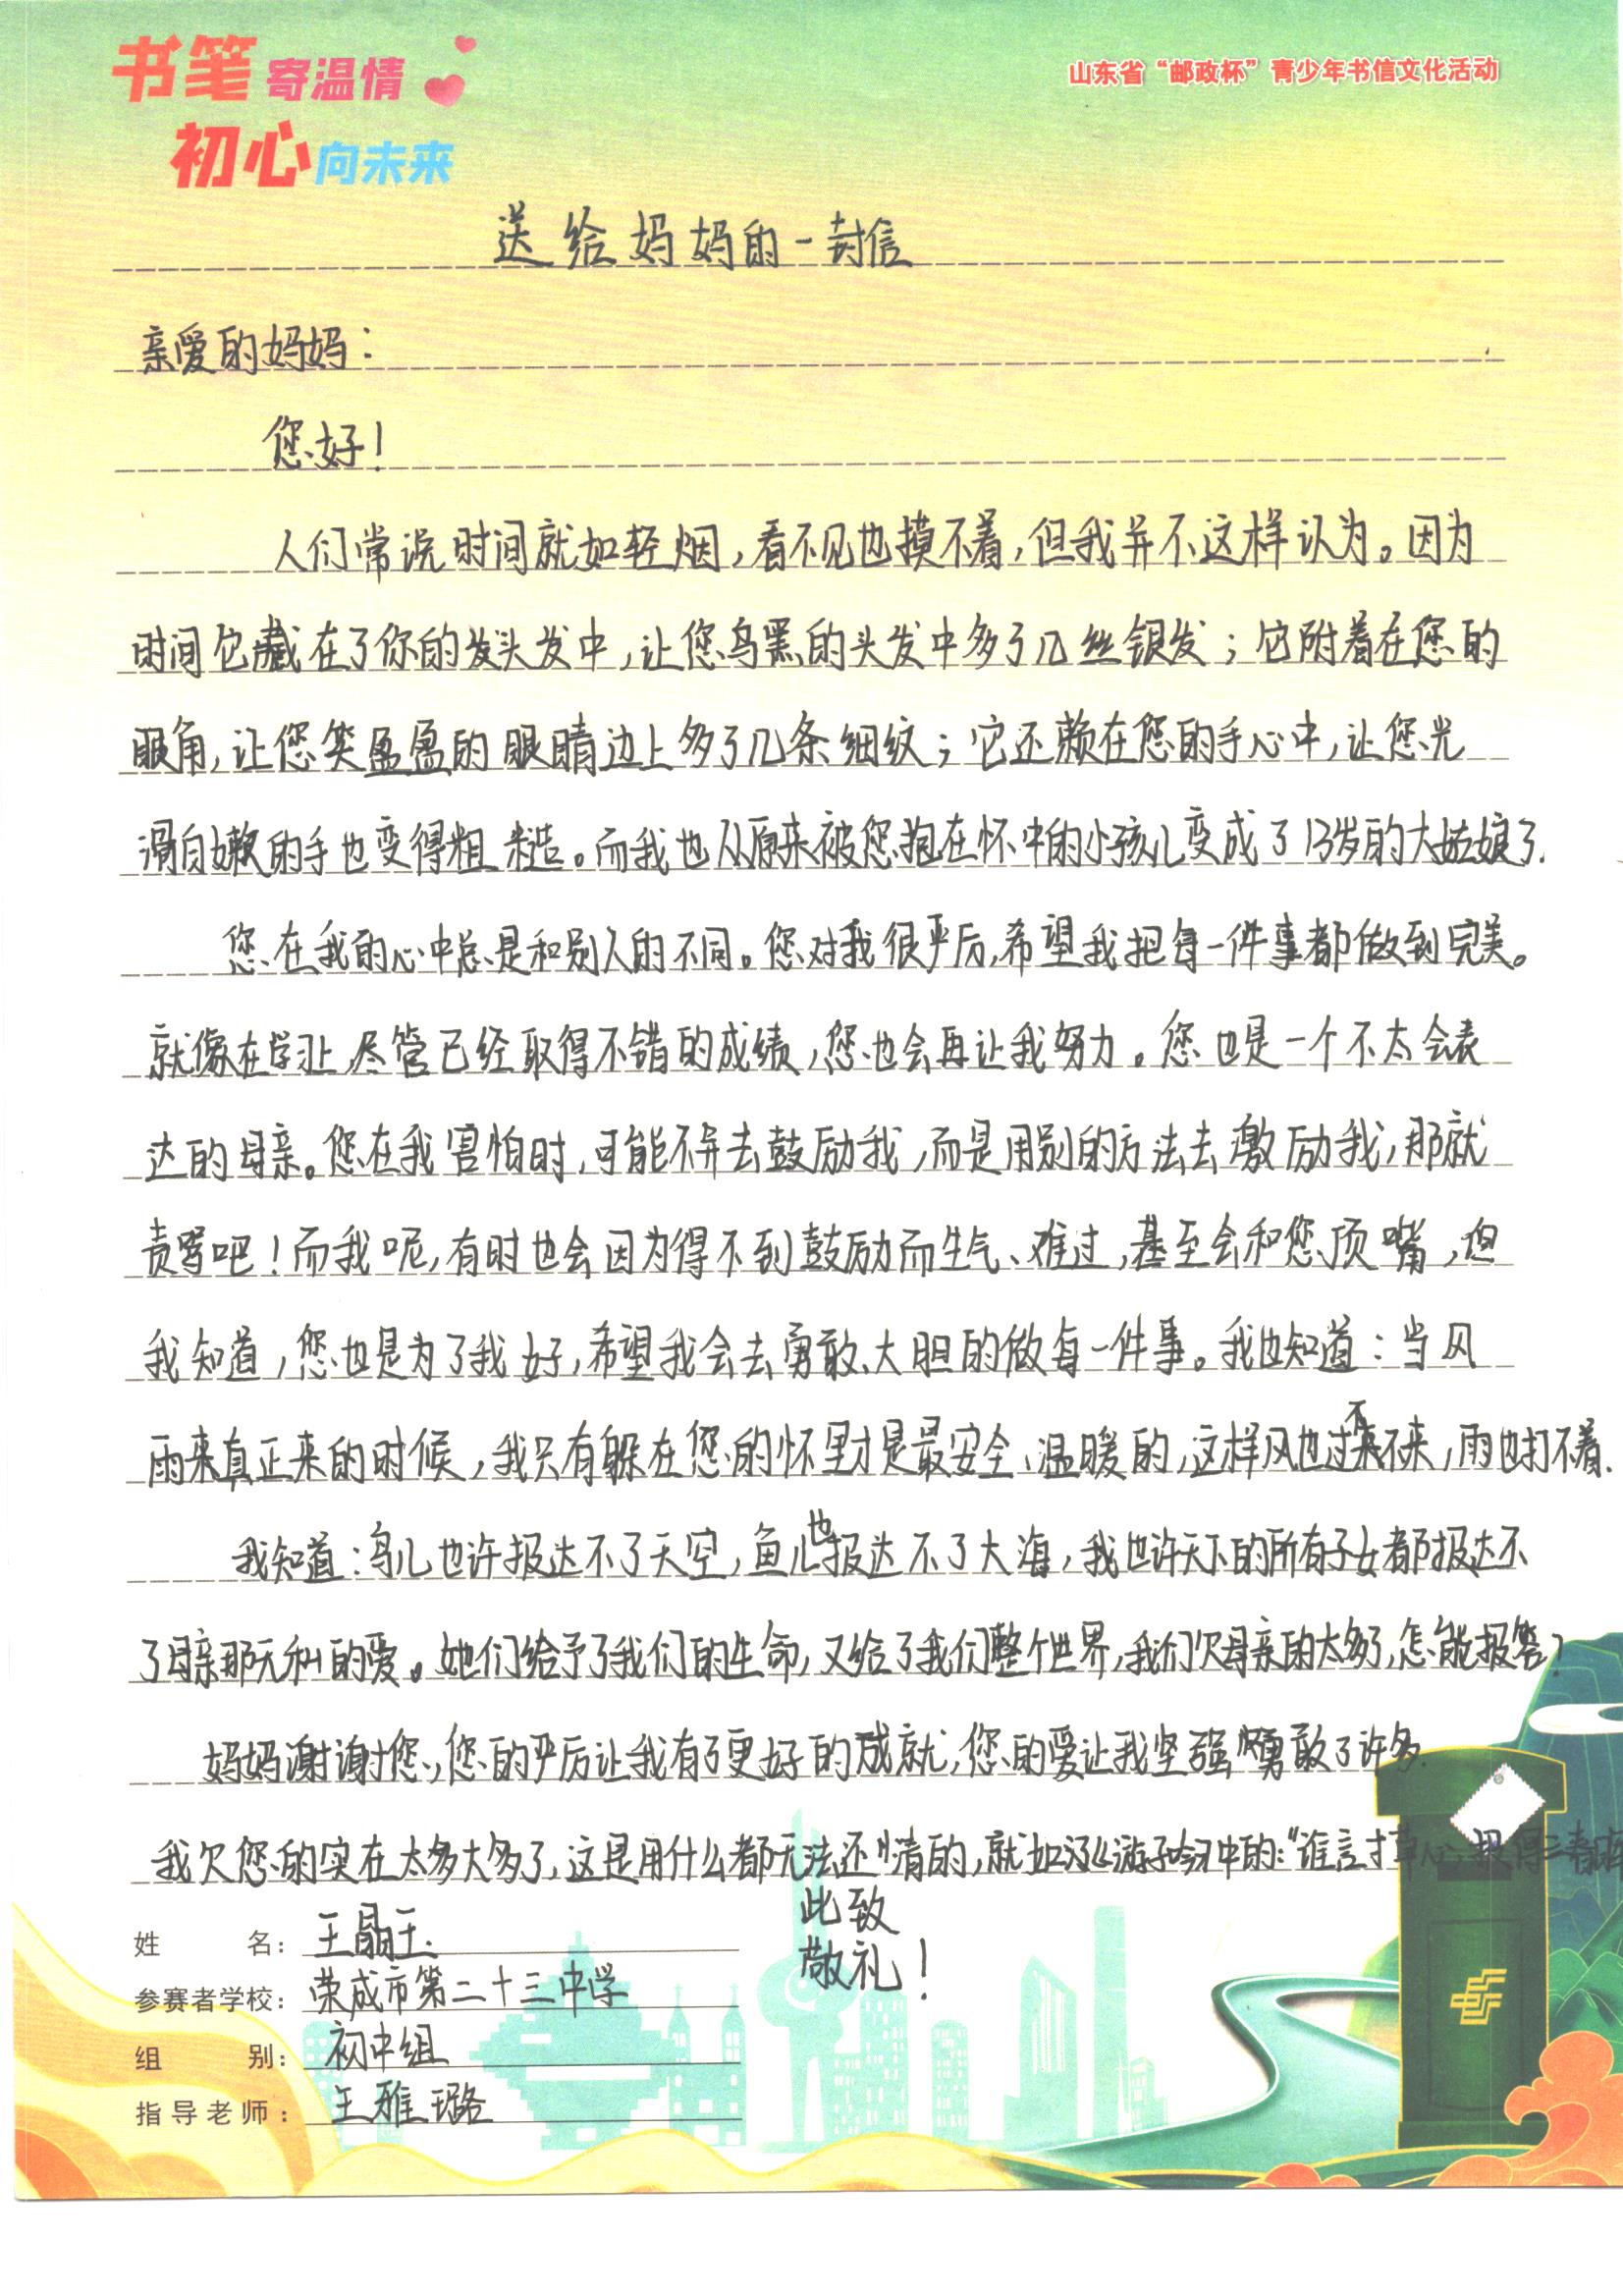 书笔寄温情
初心向未来
山东省“邮政杯”青少年书信文化活动
送给妈妈的一封信
亲爱的妈妈：
您好！
人们常说时间就如轻烟，看不见也摸不着，但我并不这样认为。因为
时间它藏在了你的发头发中，让您乌黑的头发中多了几丝银发；它附着在您的
眼角，让您笑盈盈的眼睛边上多了几条细纹；它还赖在您的手心中，让您光
滑白嫩的手也变得粗糙。而我也从原来被您抱在怀中的小孩儿变成了13岁的大姑娘了.
您在我的心中总是和别人的不同。您对我很严厉，希望我把每一件事都做到完美。
就像在学习上，尽管已经取得不错的成绩，您也会再让我努力。您也是一个不太会表
达的母亲。您在我害怕时，可能不并去鼓励我，而是用别的方法去激励我，那就
责骂吧！而我呢，有时也会因为得不到鼓励而生气、难过，甚至会和您顶嘴，但
我知道，您也是为了我好，希望我会去勇敢、大胆的做每一件事。我也知道：当风
雨来真正来的时候，我只有躲在您的怀里才是最安全、温暖的，这样风也过不来，雨也打不着.
我知道：鸟儿也许报达不了天空，鱼儿也报达不了大海，我也许天下的所有子女都报达不
了母亲那无私的爱。她们给予了我们的生命，又给了我们整个世界，我们欠母亲的太多了，怎能报答？
妈妈谢谢您，您的严厉让我有了更好的成就，您的爱让我坚强勇敢了许多.
我欠您的实在太多太多了，这是用什么都无法还清的，就如游子吟中的：“谁言寸草心，报得三春
此致
敬礼！
姓 名： 王晶王
参赛者学校： 荣成市第二十三中学
组 别： 初中组
指导老师： 王雅璐